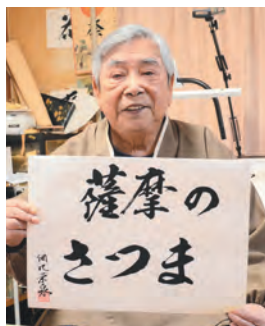 薩摩の
さつま